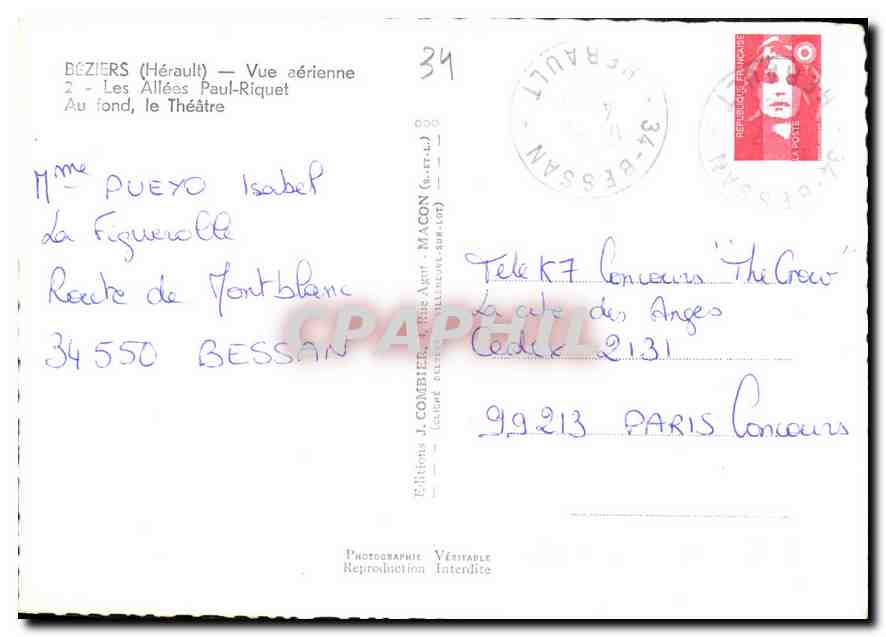 BÉZIERS (Hérault) — Vue aérienne
2 - Les Allées Paul-Riquet
Au fond, le Théâtre
34
Mme PUEYO Isabel
La Figuerolle
Route de Montblanc
34550 BESSAN
Editions J. COMBIER, 4, Rue Agut - MACON (S.-ET-L.)
HERAULT
34-BESSAN
RÉPUBLIQUE FRANÇAISE
LA POSTE
34-BESSAN
Télé K7 Concours "The Crow"
La cité des Anges
Cedex 2131
99213 PARIS Concours
PHOTOGRAPHIE VÉRITABLE
Reproduction Interdite
CPAPHIL